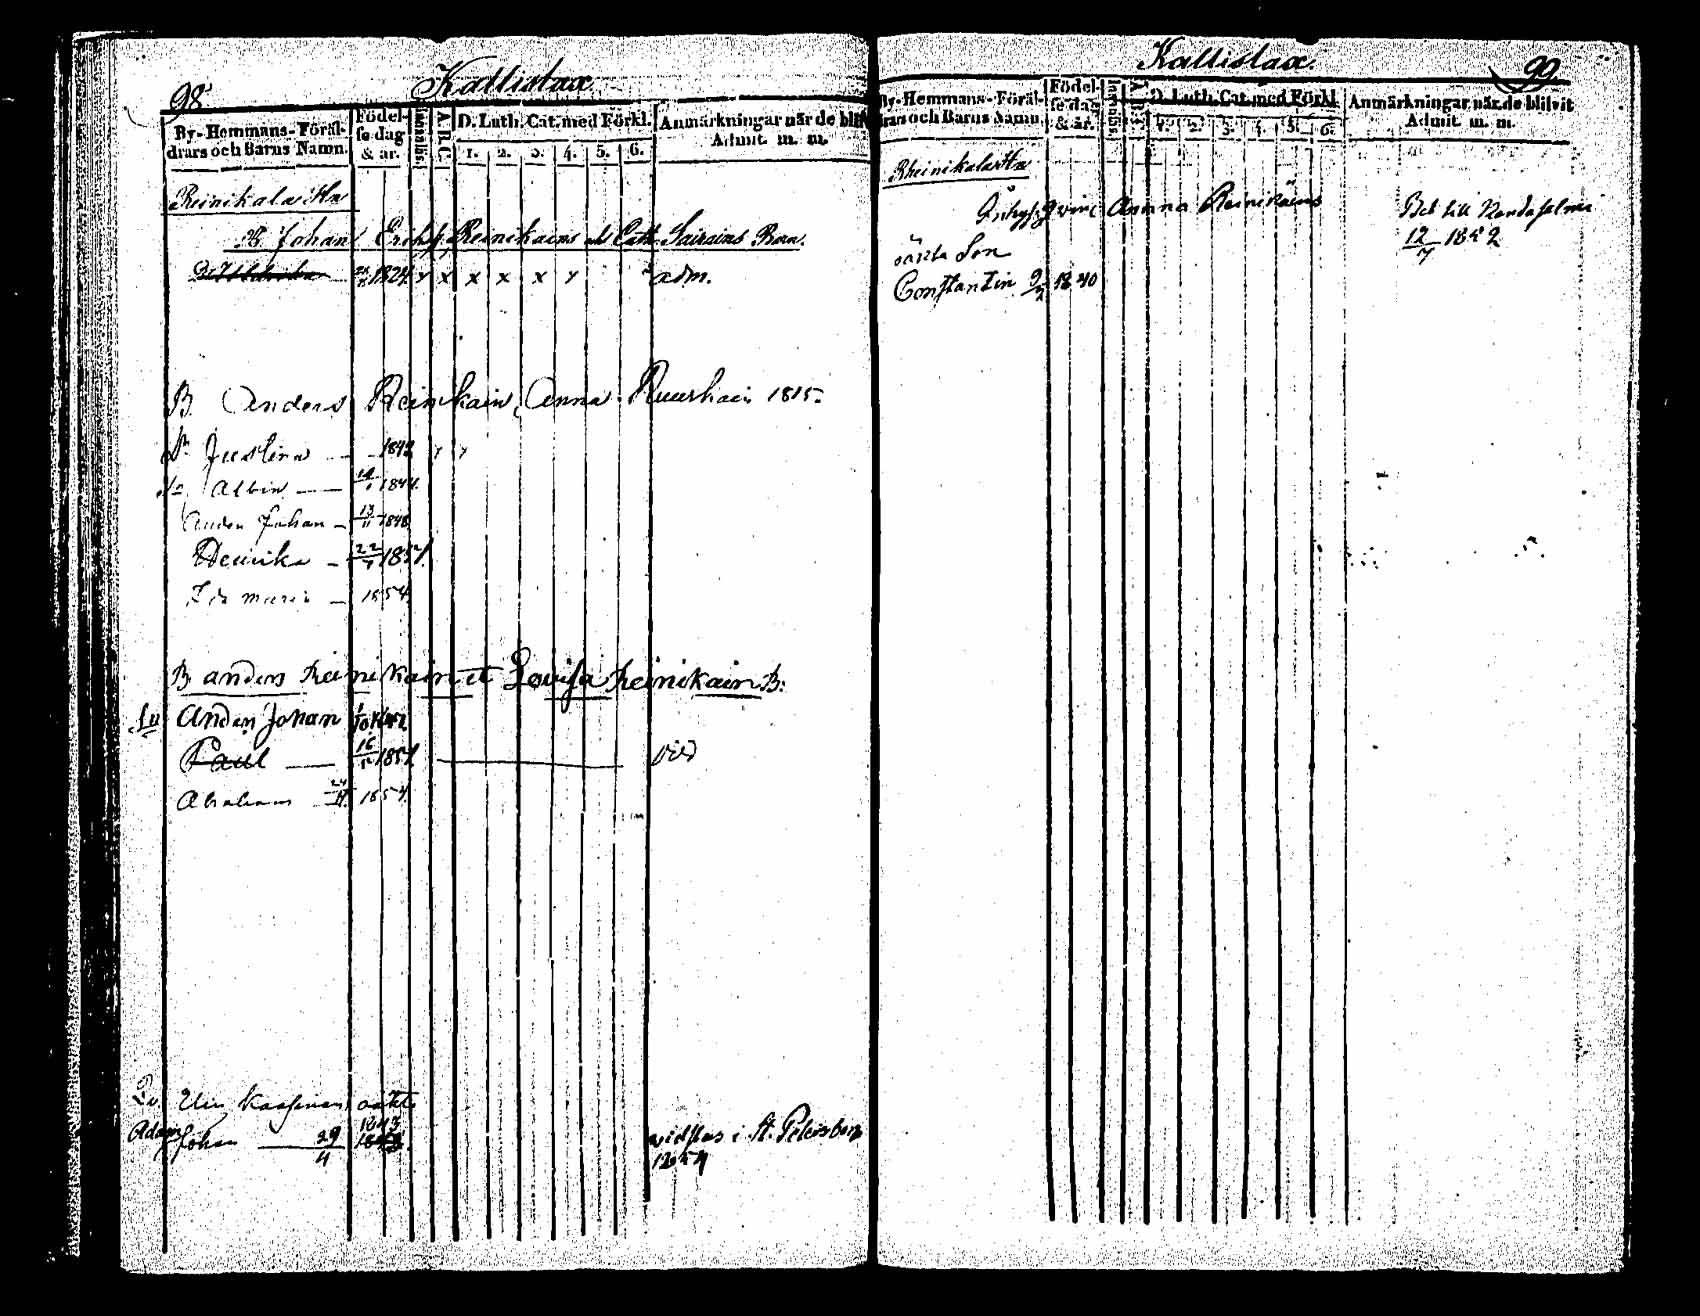 98
Kallislax
By-Hemmans-Föräl-
drars och Barns Namn.
Födel-
se dag
& år.
Innanläs.
A.B.C.
D. Luth. Cat. med Förkl.
1. 2. 3. 4. 5. 6.
Anmärkningar när de blif
Admit. m. m.
Reinikala Hn
Johan Erikss. Reinikains och Cath. Sairains Barn.
1824 x x x x x x adm.
B. Anders Reinikain, Anna Ruuskain 1815.
Justina 1842
Albin 1844
Anders Johan 13/11 1848
Henrika 22/ 1851
Ida Maria 1854
B anders Reinikain et Lovisa Reinikain B:
Anders Johan
Paul 16/ 1851 död
Abraham 24/ 1854
oäkta
Adam Johan 29/4 1843
vistas i St. Petersburg
1854
Kallislax.
99.
By-Hemmans-Föräl-
drars och Barns Namn
Födel-
se dag
& år.
Innanläs.
A.B.C.
D. Luth. Cat. med Förkl.
1. 2. 3. 4. 5. 6.
Anmärkningar när de blifvit
Admit. m. m.
Rheinikala Hn
Anna Reinikäins
Bet till Randasalmi
12/7 1852
oäkta Son
Constantin 9/2 1840